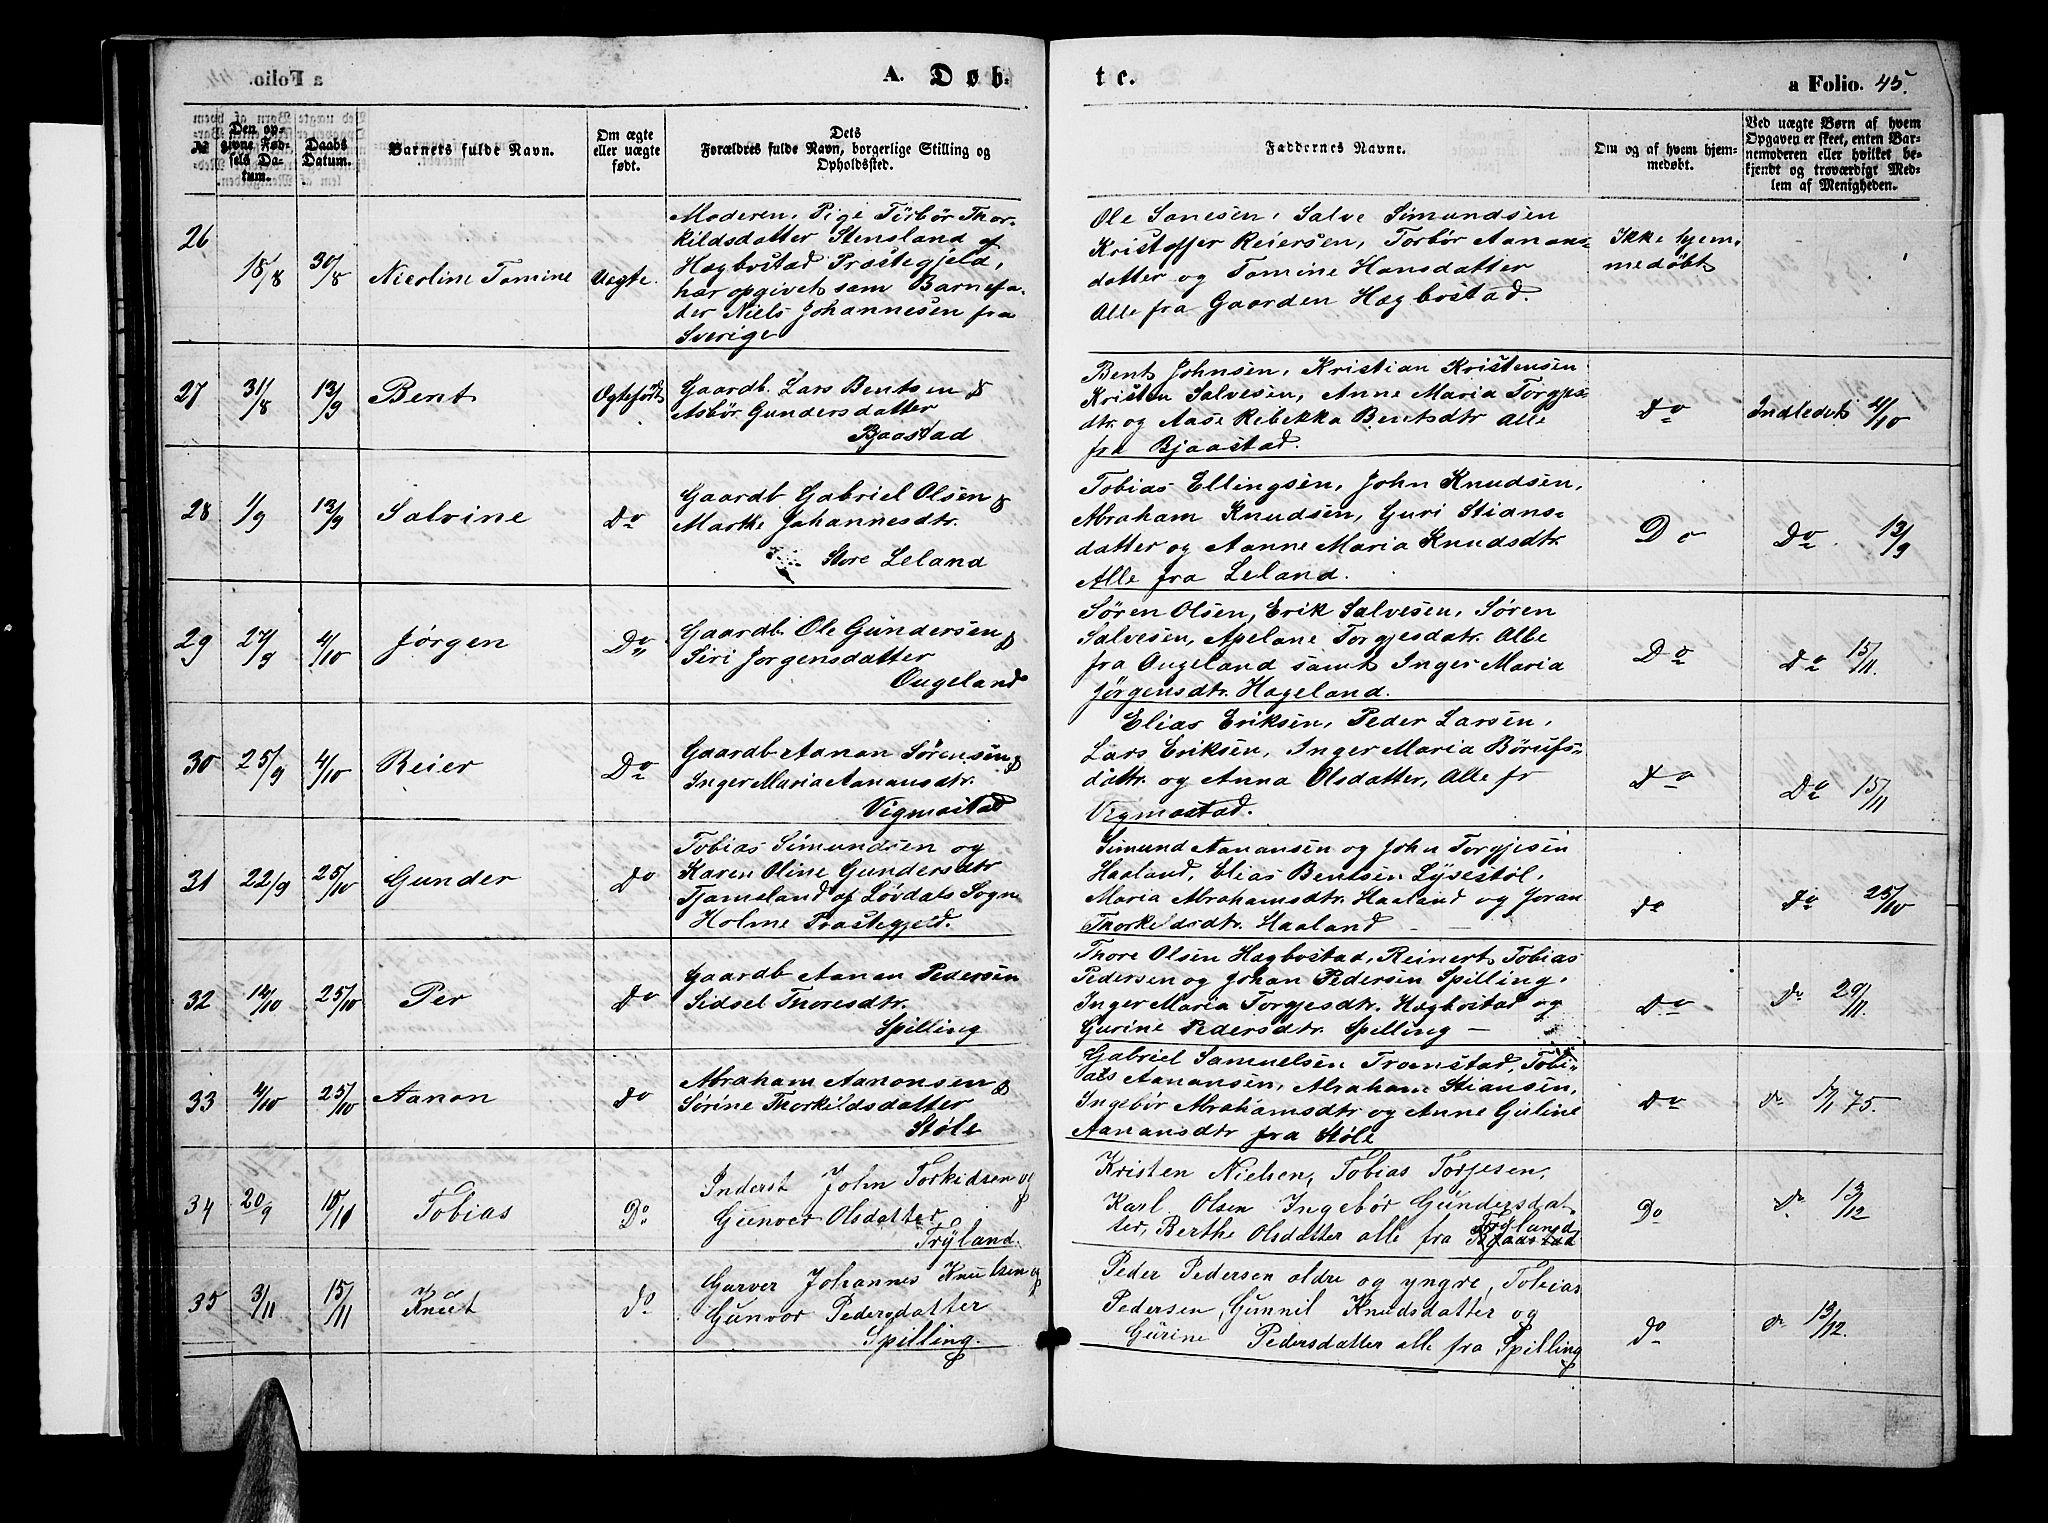 A. Døb-
te.
a Folio. 45.
No
Den opgivne Fødsels Datum.
Daabs Datum.
Barnets fulde Navn.
Om ægte eller uægte født.
Dets Forældres fulde Navn, borgerlige Stilling og Opholdssted.
Faddernes Navne.
Om og af hvem hjemmedøbt.
Ved uægte Børn af hvem Opgaven er skeet, enten Barnemoderen eller hvilket bekjendt og troværdigt Medlem af Menigheden.
26
18/8
30/8
Nicoline Tomine
Uægte.
Moderen, Pige Torbør Thor-
kildsdatter Stensland af
Hægbostad Præstegjeld,
har opgivet som Barnefa-
der Niels Johannesen fra
Sverige
Ole Sonesen, Salve Simundsen
Kristoffer Reiersen, Torbør Aanons-
datter og Tomine Hansdatter
Alle fra Gaarden Hægbostad.
Ikke hjem-
medøbt
27
31/8
13/9
Bent
Ægtefødt
Gaardb. Lars Bentsen &
Asbør Gundersdatter
Bjaastad
Bent Johnsen, Kristian Kristensen
Kristen Salvesen, Anne Maria Torgjes-
dtr. og Aase Rebekka Bentsdtr Alle
fra Bjaastad.
Do
Indledet 4/10
28
1/9
13/9
Salvine
Do
Gaardb Gabriel Olsen &
Marthe Johannesdtr.
Store Leland
Tobias Ellingsen, John Knudsen,
Abraham Knudsen, Guri Stians-
datter og Aanne Maria Knudsdtr.
Alle fra Leland.
Do
Do 13/9
29
27/9
4/10
Jørgen
Do
Gaardb. Ole Gundersen &
Siri Jørgensdatter
Ougeland
Søren Olsen, Erik Salvesen, Søren
Salvesen, Apelane Torgjesdatr. Alle
fra Ougeland samt Inger Maria
Jørgensdtr. Hageland.
Do
Do 15/11.
30
25/9
4/10
Reier
Do
Gaardb Aanon Sørensen &
Inger Maria Aanansdtr.
Vigmostad
Elias Eriksen, Peder Larsen,
Lars Eriksen, Inger Maria Børufs-
datr. og Anna Olsdatter, Alle fr
Vigmostad.
Do
Do 15/11
31
22/9
25/10
Gunder
Do
Tobias Simundsen og
Karen Oline Gundersdtr
Tjomsland af Løvdals Sogn
Holme Præstegjeld.
Simund Aanansen og John Torgjesen
Haaland, Elias Bentsen Lysestøl,
Maria Abrahamsdtr. Haaland og Joran
Thorkeldsdtr. Haaland
do
do 25/10
32
12/10
25/10
Per
Do
Gaardb Aanen Pedersen
Sidsel Thoresdtr.
Spilling
Thore Olsen Hægbostad, Reinert Tobias
Pedersen og Johan Pedersen Spilling,
Inger Maria Torgjesdtr. Hægbostad og
Gurine Pedersdtr. Spilling —
Do
do 29/11.
33
4/10
25/10
Aanon
do
Abraham Aanonsen &
Sørine Thorkildsdatter
Støle
Gabriel Samuelsen Tromstad, Tobi-
as Aanansen, Abraham Stiansen,
Ingebør Abrahamsdtr og Anne Guline
Aanansdtr fra Støle
Do
do 1/1 75.
34
20/9
15/11
Tobias
Do
Inderst John Torkidsen og
Gunvor Olsdatter
Tryland.
Kristen Nielsen, Tobias Torjesen,
Karl Olsen Ingebør Gundersdat-
ter, Berthe Olsdatter alle fra Tryland
Do
do 13/12
35
3/11
15/11
Knut
do
Garver Johannes Knutsen og
Gunvor Pedersdatter
Spilling.
Peder Pedersen ældre og yngre, Tobias
Pedersen, Gunnil Knudsdatter og
Gurine Pedersdatter alle fra Spilling
do
do 13/12.